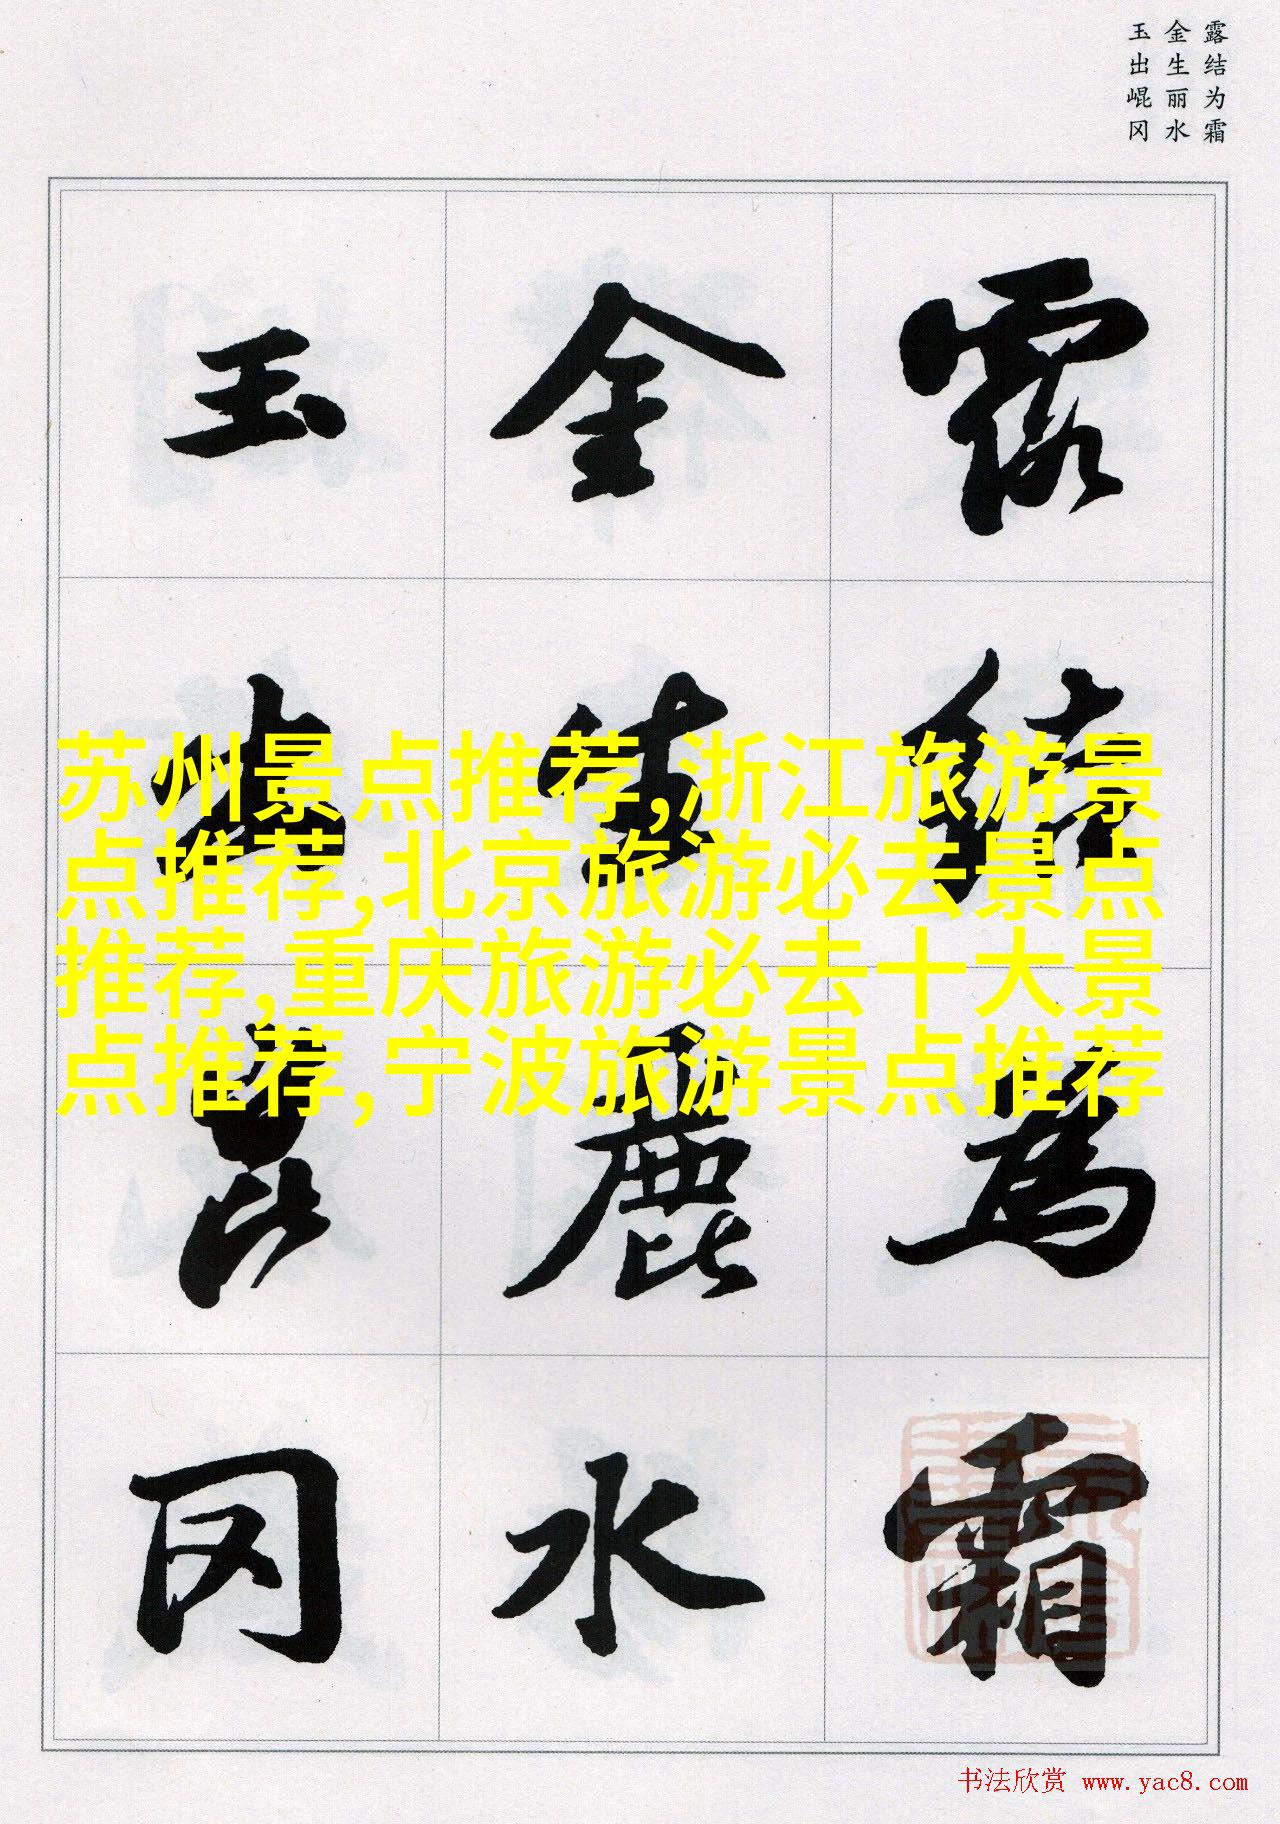 露结为霜
金生丽水
玉出崐冈
露結為霜
金生麗水
玉出崑冈
苏州景点推荐,浙江旅游景
点推荐,北京旅游必去景点
推荐,重庆旅游必去十大景
点推荐,宁波旅游景点推荐
书法欣赏 www.yac8.com